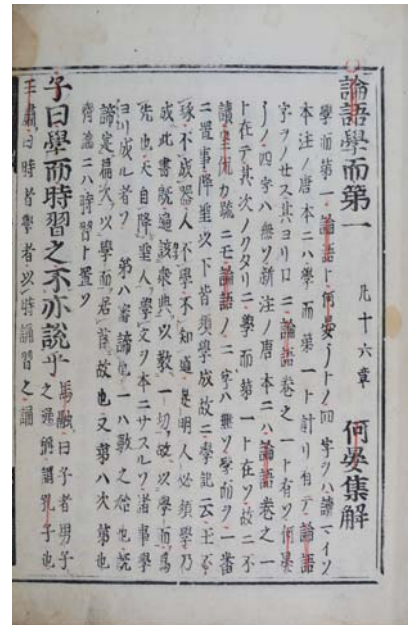 論語學而第一 凡十六章 何晏集解
學而第一論語ト何晏ノ四字ヲハ讀マイソ
本注ノ唐本ニハ學而第一ト計リ有テ論語
字ヲノセス其ヨリ口ニ論語巻之一ト有ソ何晏
ノ四字ハ無ソ新注ノ唐本ニハ論語巻之一
ト在テ其次ノクタリニ學而第一ト在ソ故ニ不
讀皇侃カ疏ニモ論語ノ二字ハ無ソ學而ヲ一番
ニ置事降聖以下皆須學成故ニ學記云玉不
琢不成器人不學不知道是明人必須學乃
成此書既遍該衆典以教一切故以學而爲
先也夫自降聖人學文ヲ本ニサスルソ諸事學
ヨリ成ル者ソ 第ハ審諦也一ハ數之始也既
諦定篇次以學而居首故也又第ハ次第也
齊論ニハ時習ト置ソ
子曰學而時習之不亦説乎 馬融曰子者男子
之通稱謂孔子也
王肅曰時者學者以時誦習之誦